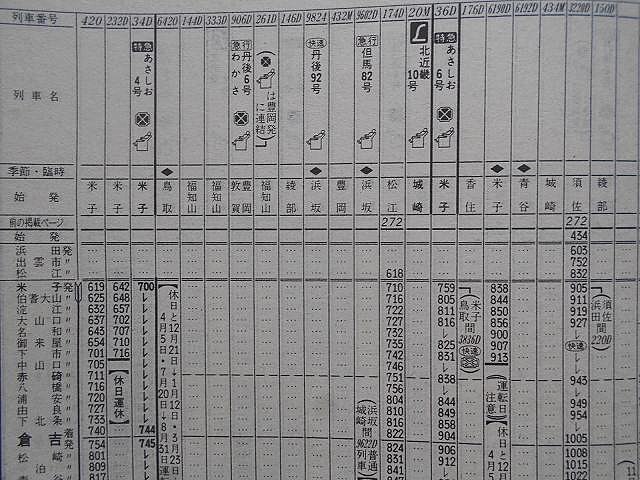 列車番号 420 232D 34D 6420 144D 333D 906D 261D 146D 9824 432M 9602D 174D 20M 36D 176D 6190D 6192D 434M 3220D 150D
列車名
特急 あさしお4号
急行 丹後6号 わかさ
(は豊岡発に連結)
快速 丹後92号
急行 但馬82号
北近畿10号
特急 あさしお6号
季節・臨時
始発 米子 米子 米子 鳥取 福知山 福知山 敦賀 福知山 綾部 浜坂 豊岡 浜坂 松江 城崎 米子 香住 米子 青谷 城崎 須佐 綾部
前の掲載ページ 272 272
始発 434
浜田発 603
出雲市〃 752
松江〃 618 832
米子発 619 642 700 710 759 838 905
伯耆大山〃 625 648 レ 716 805 844 911
淀江〃 632 657 レ 722 811 850 919
大山口〃 637 702 レ 727 816 856 927
名和〃 643 707 レ 816 レ 900 レ
御来屋〃 654 710 レ 732 825 907 快速
下市〃 701 716 レ 735 831 913 レ
中山口〃 705 レ 742 レ
赤碕〃 711 レ 751 838 943
八橋〃 716 レ 756 レ レ
浦安〃 720 レ 804 844 949
由良〃 727 レ 810 849 954
下北条〃 733 レ 816 858 レ
倉吉着 740 744 822 904 1005
発 754 745 824 906 1008
松崎〃 801 レ 831 912 1015
泊〃 809 レ 841 1022
817
休日と12月21日→1月12日・3月23日
4月5日・7月20日→8月31日運転
休日運休
浜坂城崎間 9622D 普通列車
米子鳥取間 3836D
運転日注意
休日と12
4月5
須佐浜田間 220D